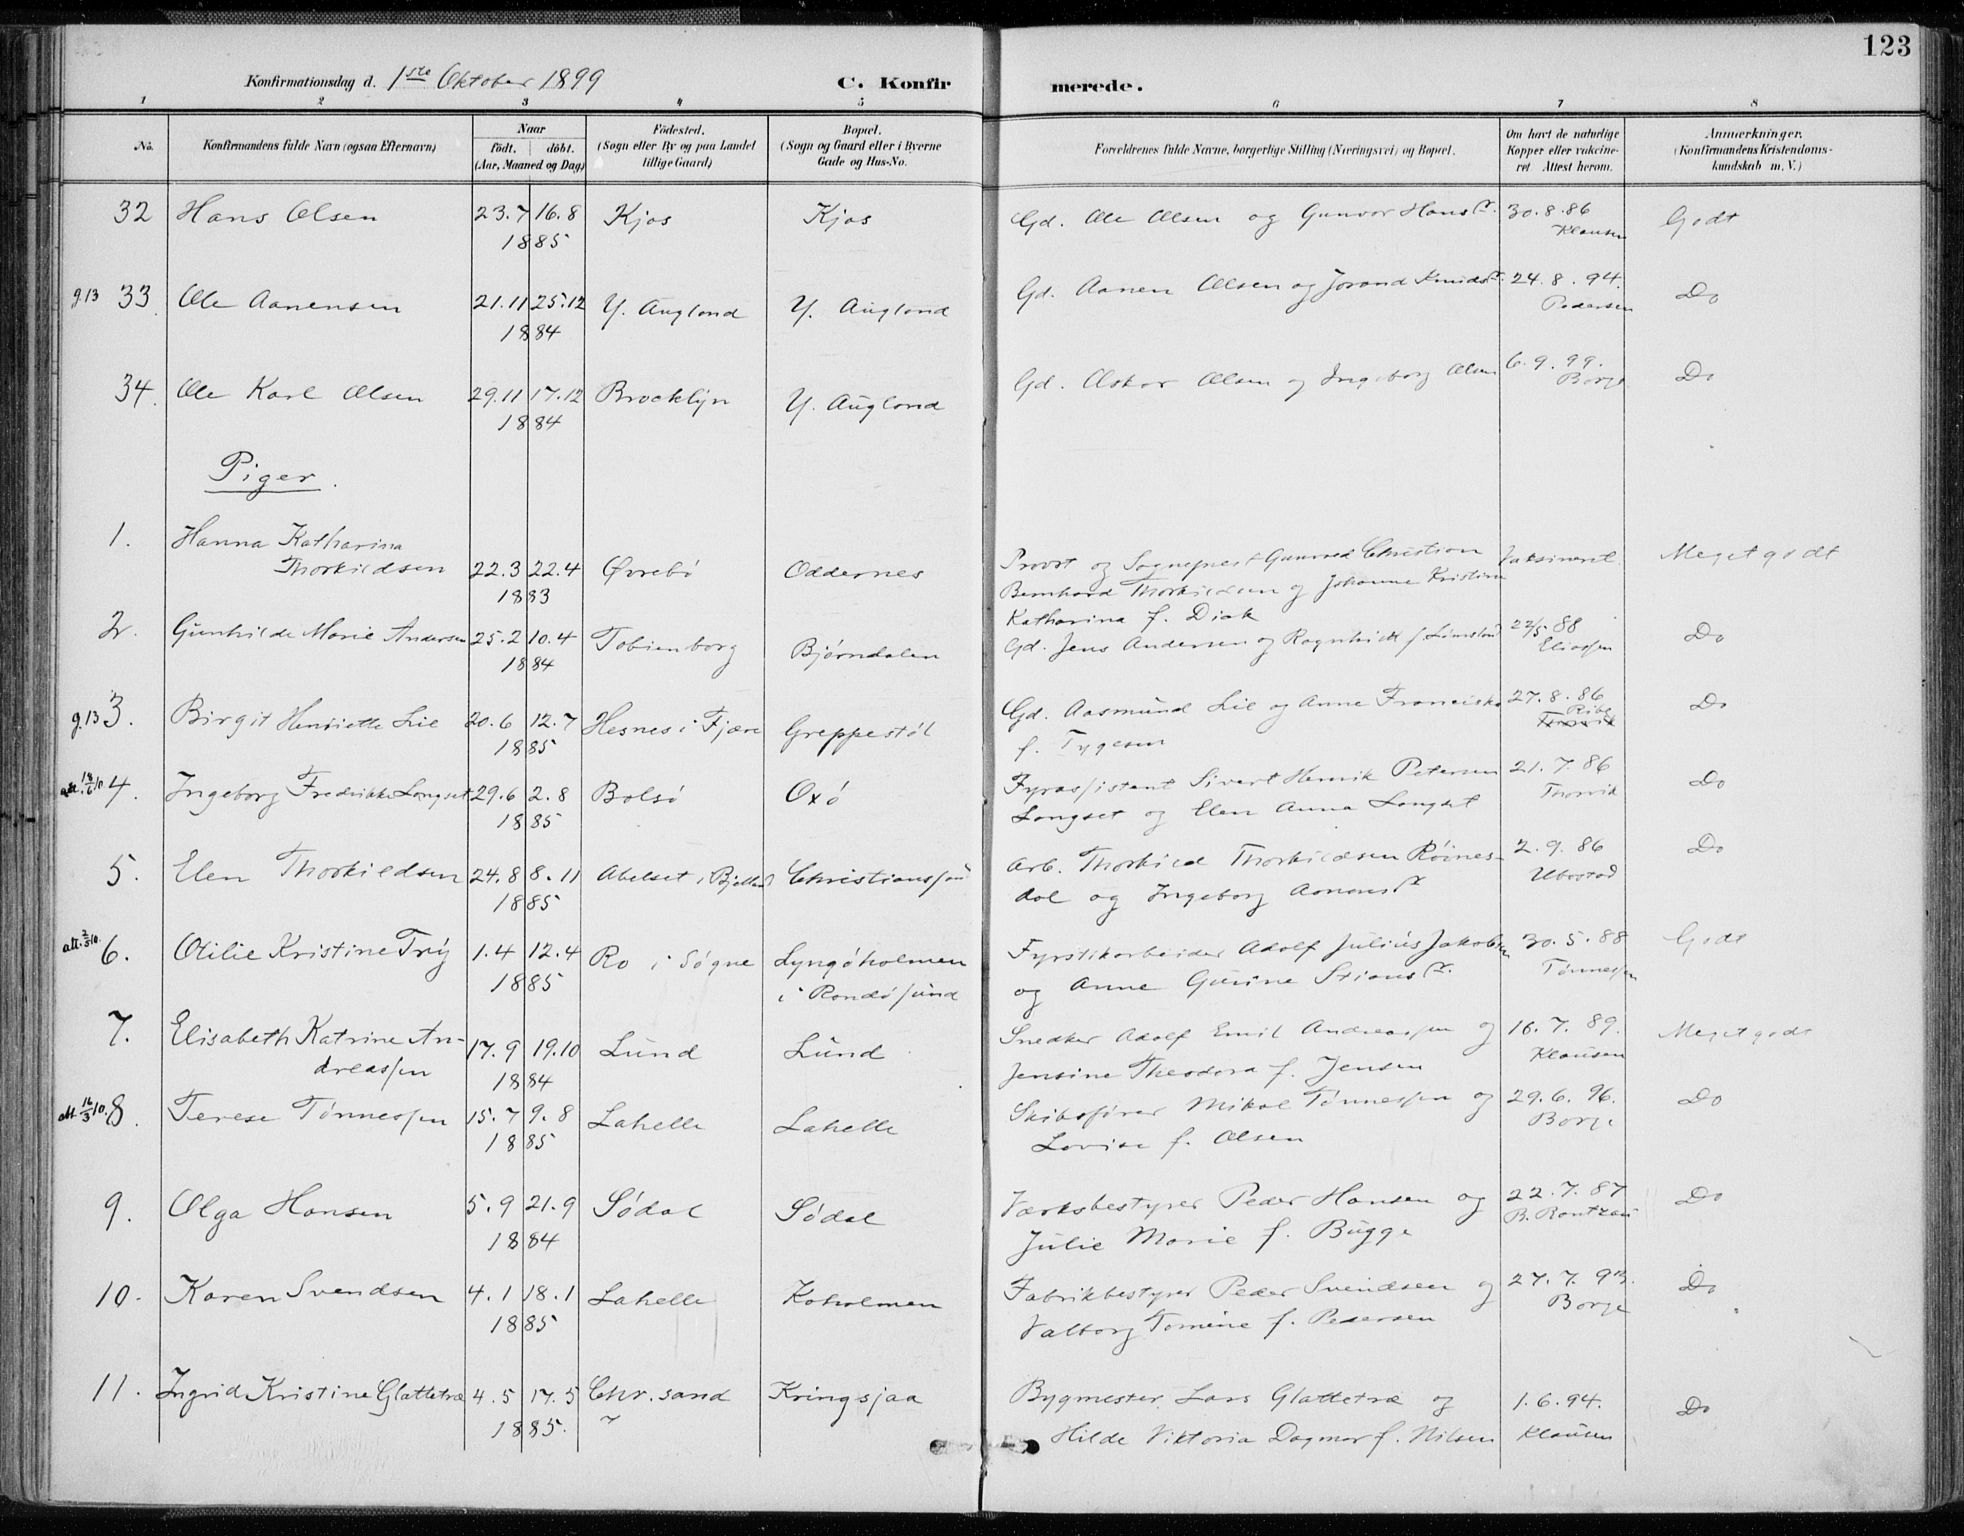 123
Konfirmationsdag d. 1ste Oktober 1899 C. Konfirmerede.
1 2 3 4 5 6 7 8
No. Konfirmandens fulde Navn (ogsaa Efternavn) Naar födt. döbt. (Aar, Maaned og Dag) Födested. (Sogn eller By og paa Landet tillige Gaard) Bopæl. (Sogn og Gaard eller i Byerne Gade og Hus-No. Forældrenes fulde Navne, borgerlige Stilling (Næringsvei) og Bopæl. Om havt de naturlige Kopper eller vakcineret Attest herom. Anmærkninger. (Konfirmandens Kristendomskundskab m. V.)
32 Hans Olsen 23.7 16.8 1885 Kjos Kjos Gd. Ole Olsen og Gunvor Hansdr. 30.8.86 Klausen Godt
g.13 33. Ole Aanensen 21.11 25.12 1884 Y. Augland Y. Augland Gd. Aanen Olsen og Jorand Knudsdr. 24.8.94. Pedersen Do
34. Ole Karl Olsen 29.11 17.12 1884 Brooklijn Y. Augland Gd. Oskar Olsen og Ingeborg Olsen 6.9.99. Borge Do
Piger.
1. Hanna Katharina Thorkildsen 22.3 22.4 1883 Øvrebö Oddernes Provst og Sogneprest Gunvald Christian Bernhard Thorkildsen og Johanne Kristine Katharina f. Vaksineret Meget godt
2. Gunhilde Marie Andersen 25.2 10.4 1884 Tobienborg Bjørndalen Gd. Jens Andersen og Ragnhild f. 22/5 88 Eliassen Do
g.13 3. Birgit Henriette Lie 20.6 12.7 1885 Hesnes i Fjære Greppestøl Gd. Aasmund Lie og Anne Franciska f. Tygesen 27.8.86 Ribe Do
att. 18/6 10 4. Ingeborg Fredrikke Longset 29.6 2.8 1885 Bolsö Oxö Fyrassistent Sivert Henrik Petersen Longset og Elen Anna Longset 21.7.86 Thorvik Do
5. Elen Thorkildsen 24.8 8.11 1885 Abelset i Bjelland Christianssund Arb. Thorkild Thorkildsen Röinesdal og Ingeborg Aanensdr 2.9.86 Ubostad Do
att. 2/5 10. 6. Otilie Kristine Try 1.4 12.4 1885 Ro i Søgne Lyngöholmen i Randösund Fyrstikarbeider Adolf Julius Jakobsen og Anne Gurine Stiansdr. 30.5.88 Tønnessen Godt
7. Elisabeth Katrine Andreassen 17.9 19.10 1884 Lund Lund Snedker Adolf Emil Andreassen og Jensine Theodora f. Jensen 16.7.89. Klausen Meget godt
att. 16/3 10. 8. Terese Tønnessen 15.7 9.8 1885 Lahelle Lahelle Skibsfører Mikal Tønnessen og Lovise f. Olsen 29.6.96. Borge Do
9. Olga Hansen 5.9 21.9 1884 Södal Södal Værksbestyrer Peder Hansen og Julie Marie f. Bugge 22.7.87 B. Rantzau Do
10. Karen Svendsen 4.1 18.1 1885 Lahelle Koholmen Fabrikbestyrer Peder Svendsen og Valborg Tomine f. Pedersen 27.7.93. Borge Do
11. Ingrid Kristine Glattetræ 4.5 17.5 1885. Chr.sand Kringsjaa Bygmester Lars Glattetræ og Hilde Viktoria Dagmar f. Nilsen 1.6.94. Klausen Do